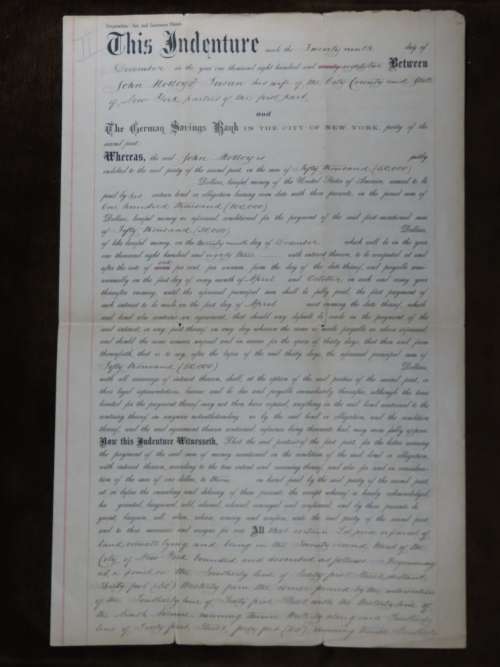 This Indenture made the Twenty ninth day of
December in the year one thousand eight hundred and Between
John Molloy & Susan his wife of the City County and State
of New York parties of the first part,
and
The German Savings Bank IN THE CITY OF NEW YORK, party of the
second part.
Whereas, the said John Molloy is justly
indebted to the said party of the second part, in the sum of Fifty thousand (50,000)
Dollars, lawful money of the United States of America, secured to be
paid by his certain bond or obligation bearing even date with these presents, in the penal sum of
One hundred thousand (100,000)
Dollars, lawful money as aforesaid, conditioned for the payment of the said first mentioned sum
of Fifty thousand (50,000) Dollars,
of like lawful money, on the twenty ninth day of December which will be in the year
one thousand eight hundred and with interest thereon, to be computed at and
after the rate of per cent. per annum, from the day of the date thereof, and payable semi-
annually on the first day of every month of April and October, in each and every year
thereafter ensuing, until the aforesaid principal sum shall be fully paid; the first payment of
such interest to be made on the first day of April next ensuing the date thereof, which
said bond also contains an agreement, that should any default be made in the payment of the
said interest, or any part thereof, on any day whereon the same is made payable as above expressed,
and should the same remain unpaid and in arrear for the space of thirty days, that then and from
thenceforth, that is to say, after the lapse of the said thirty days, the aforesaid principal sum of
Fifty thousand (50,000) Dollars,
with all arrearage of interest thereon, shall, at the option of the said parties of the second part, or
their legal representatives, become and be due and payable immediately thereafter, although the time
limited for the payment thereof may not then have expired, anything in the said bond contained to the
contrary thereof in anywise notwithstanding: as by the said bond or obligation, and the condition
thereof, and the said agreement therein contained, reference being thereunto had, may more fully appear.
Now this Indenture Witnesseth, That the said parties of the first part, for the better securing
the payment of the said sum of money mentioned in the condition of the said bond or obligation,
with interest thereon, according to the true intent and meaning thereof; and also for and in considera-
tion of the sum of one dollar, to them in hand paid by the said party of the second part,
at or before the ensealing and delivery of these presents, the receipt whereof is hereby acknowledged,
ha granted, bargained, sold, aliened, released, conveyed and confirmed, and by these presents do
grant, bargain, sell, alien, release, convey and confirm, unto the said party of the second part,
and to their successors and assigns for ever, All that certain lot piece or parcel of
land situate lying and being in the Twenty second Ward of the
City of New York bounded and described as follows Beginning
at a point on the Southerly line of Sixty first Street distant
feet Westerly from the corner formed by the intersection
of the Southerly line of Sixty first Street with the Westerly line of
the Avenue running thence Westerly along said Southerly
line of Sixty first Street, feet running thence